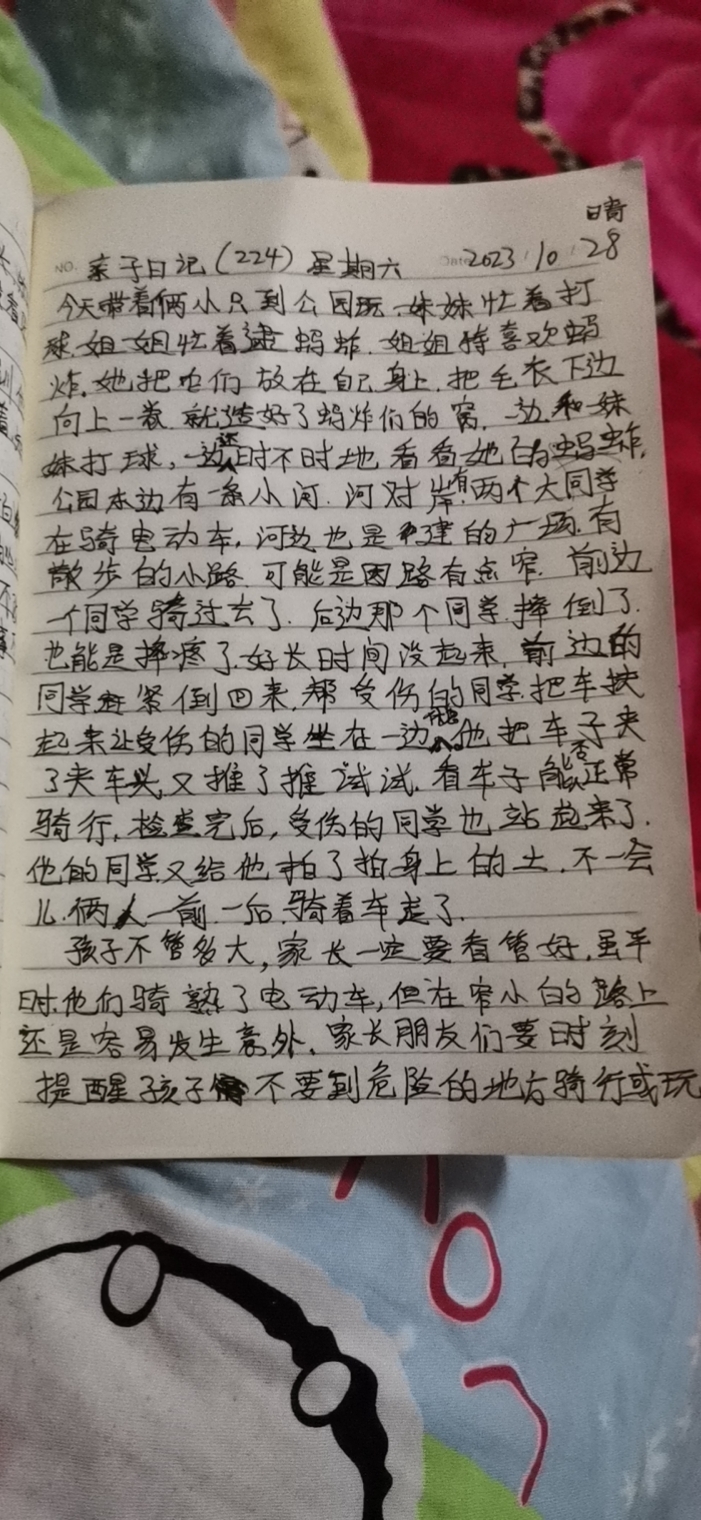 晴
NO. 亲子日记(224) 星期六 Date 2023 10 28
今天带着俩小只到公园玩.妹妹忙着打
球.姐姐忙着逮蚂蚱.姐姐特喜欢蚂
蚱.她把它们放在自己身上.把毛衣下边
向上一卷.就造好了蚂蚱们的窝.边和妹
妹打球,一边还时不时地看看她的蚂蚱.
公园东边有一条小河.河对岸有两个大同学
在骑电动车.河边也是新建的广场.有
散步的小路.可能是因路有点窄.前边
一个同学骑过去了.后边那个同学摔倒了.
也能是摔疼了.好长时间没起来.前边的
同学赶紧倒回来.帮受伤的同学把车扶
起来让受伤的同学坐在一边.他把车子夹
了夹车头.又推了推试试.看车子能否正常
骑行.检查完后,受伤的同学也站起来了.
他的同学又给他拍了拍身上的土.不一会
儿.俩人一前一后.骑着车走了.
孩子不管多大,家长一定要看管好.虽平
时.他们骑熟了电动车,但在窄小的路上
还是容易发生意外.家长朋友们要时刻
提醒孩子不要到危险的地方骑行或玩